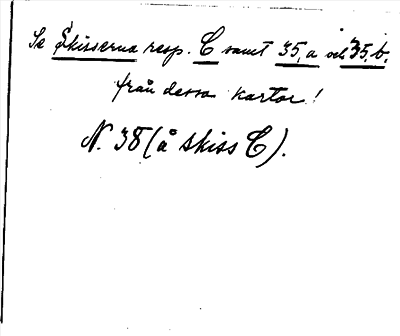 Se Skisserna resp. C samt 35,a och 35,b,
från dessa kartor!
N. 38 (å skiss C).